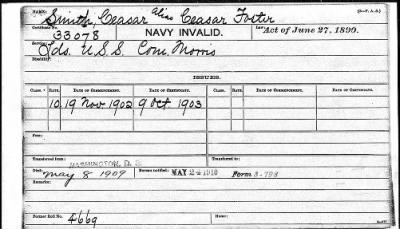 NAME: Smith, Ceasar alias Ceasar Foster
Certificate No. 33078 NAVY INVALID. Law Act of June 27, 1890.
Service: Lds. U.S.S. Com. Morris
Disability:
ISSUES.
CLASS. RATE. DATE OF COMMENCEMENT. DATE OF CERTIFICATE. CLASS. RATE. DATE OF COMMENCEMENT. DATE OF CERTIFICATE.
10 19 Nov 1902 9 Oct 1903
From:
Transferred from WASHINGTON, D. C. Transferred to
Died: May 8 1909 Bureau notified: MAY 24 1910 Form 3-798
Remarks:
Former Roll No. 4669 Home: